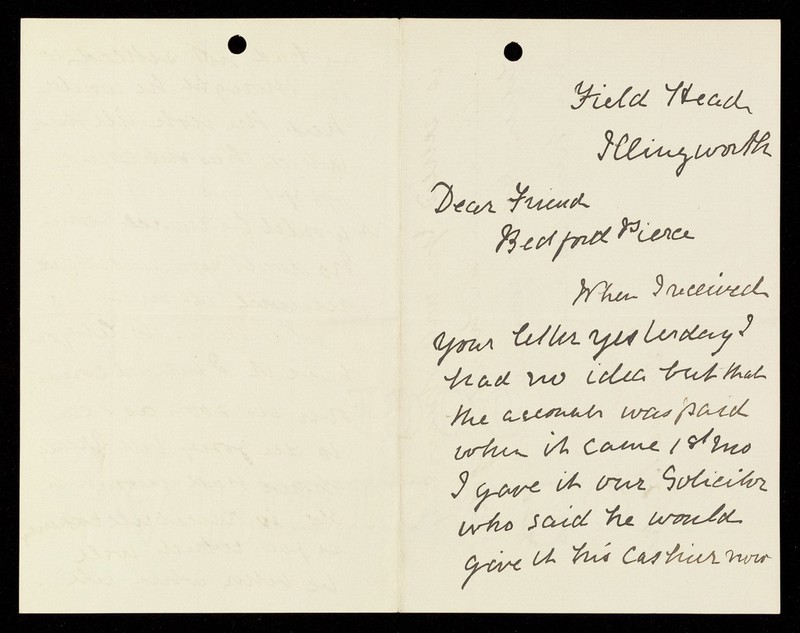 Field Head
Illingworth
Dear Friend
Bedford Pierce
When I received
your letter yesterday I
had no idea but that
the account was paid
when it came 1st mo
I gave it our Solicitor
who said he would
give it his Cashier now